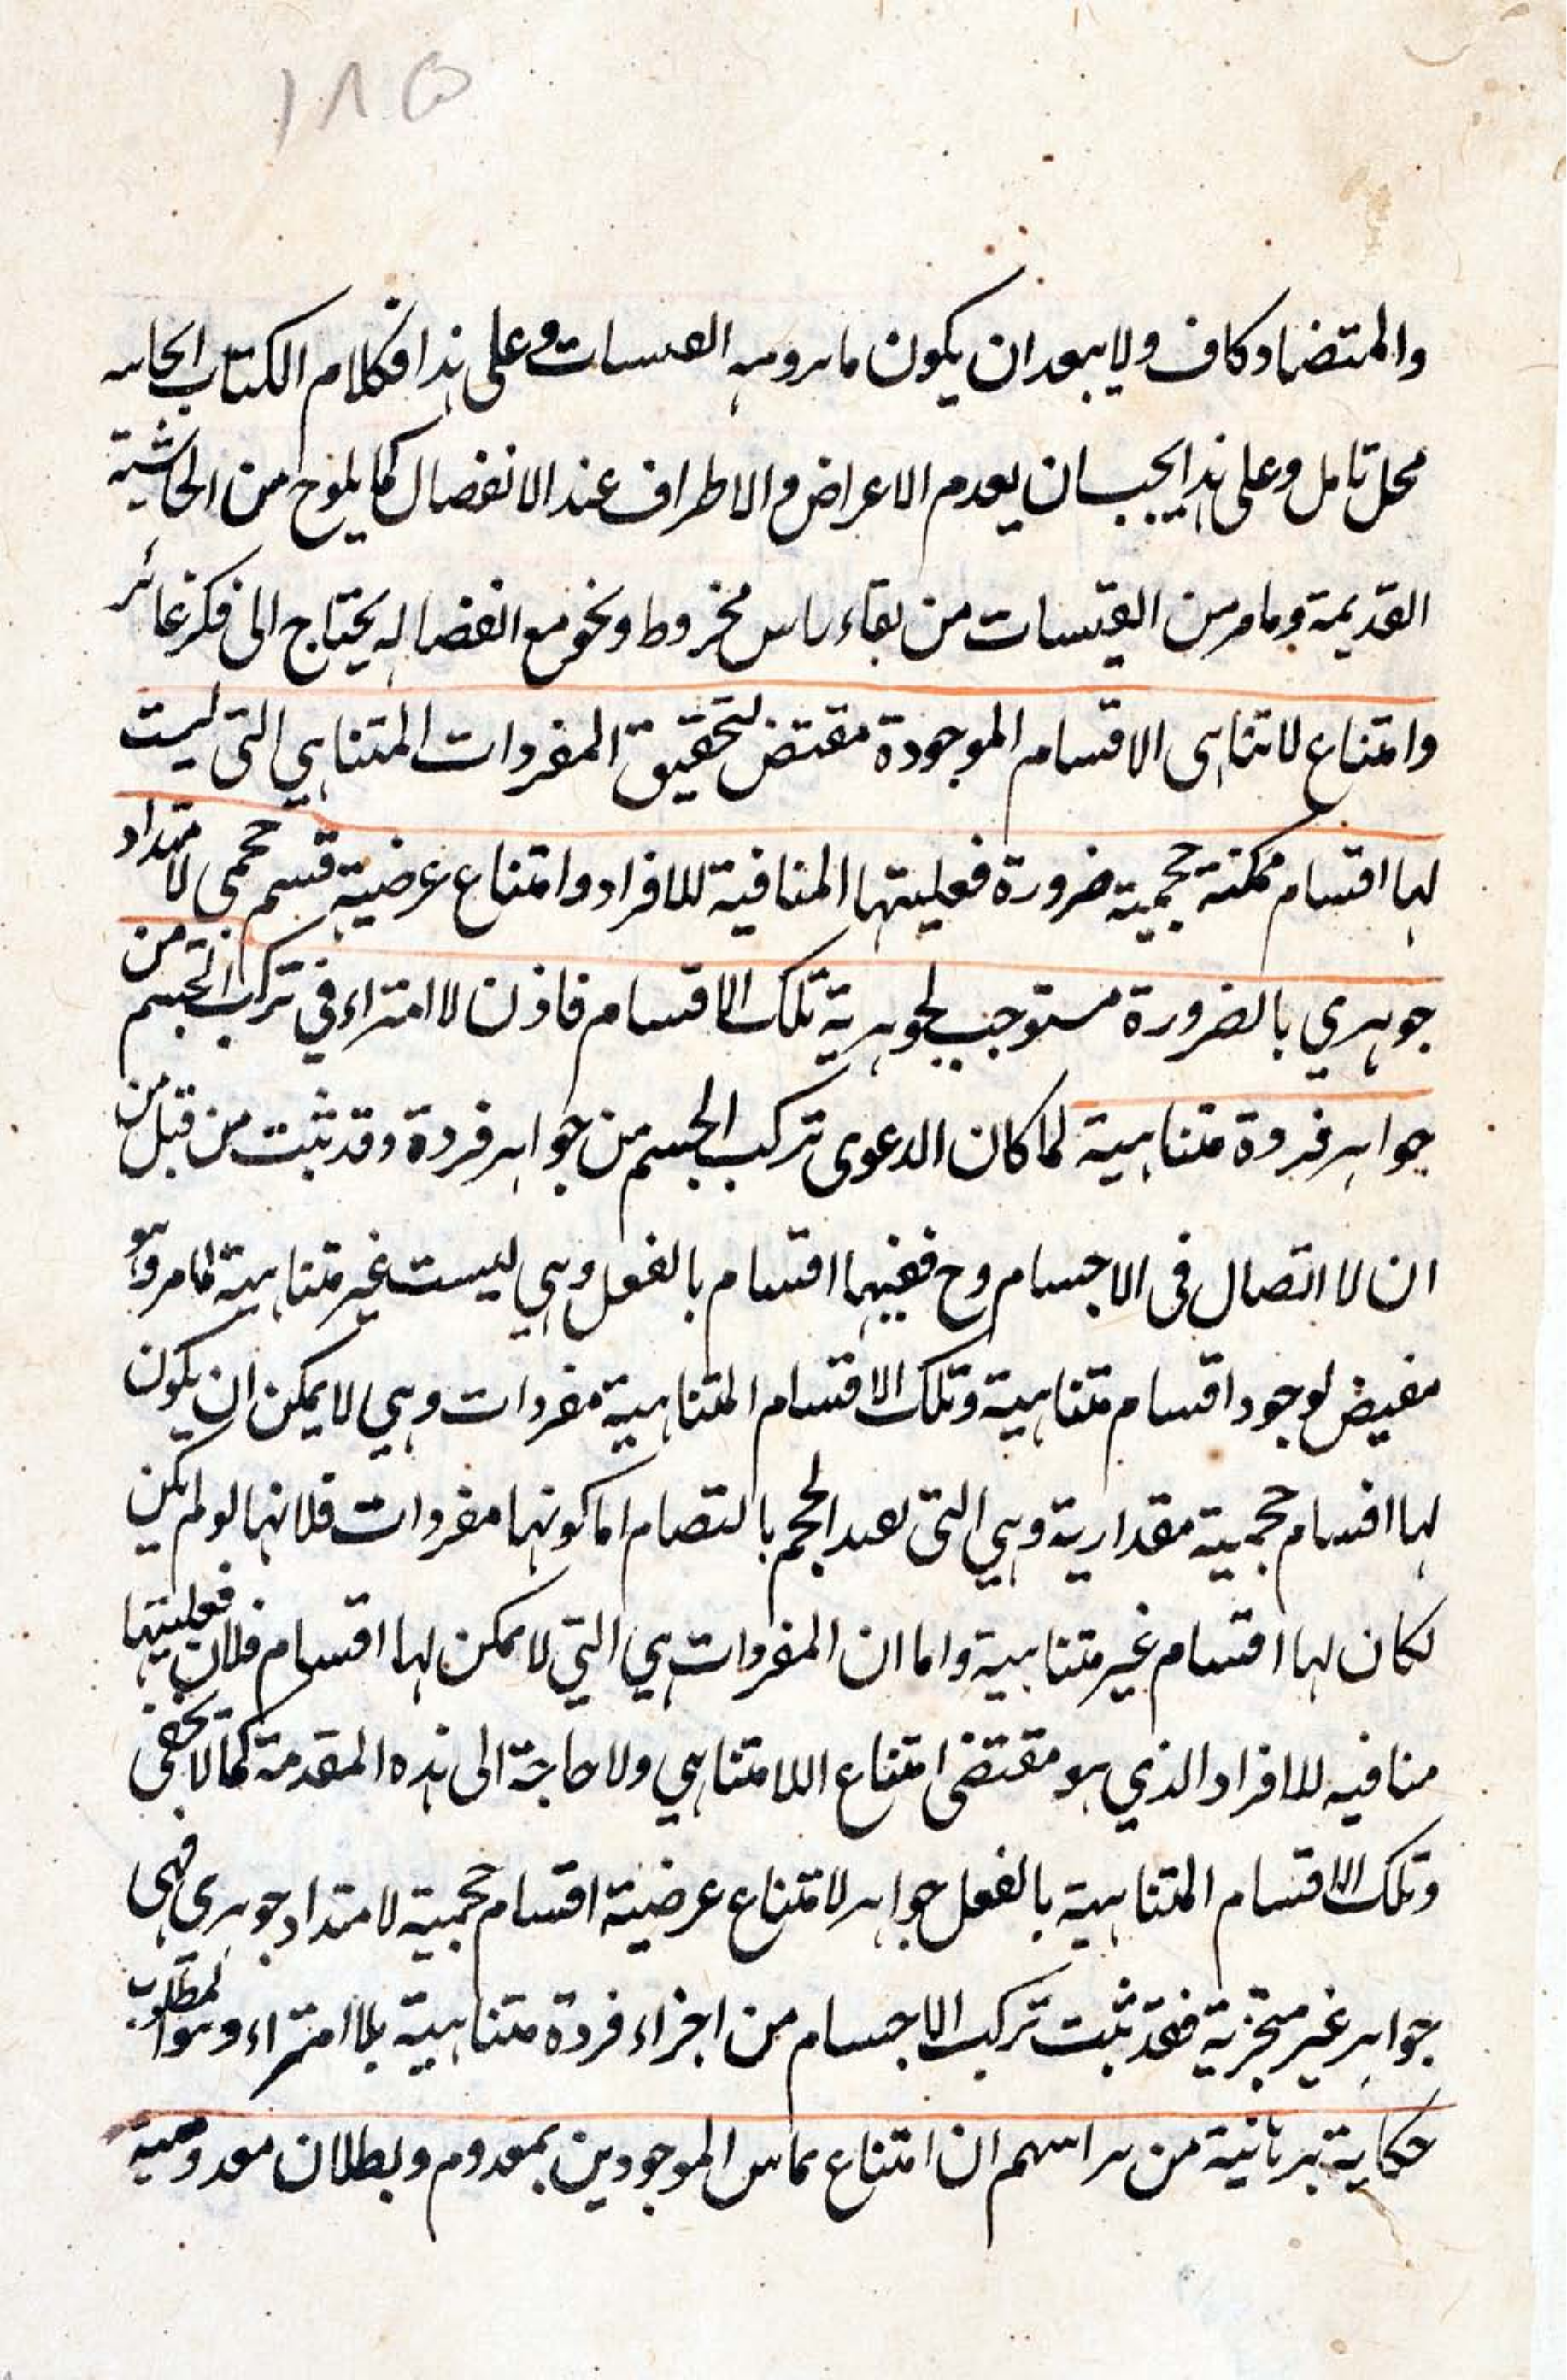 ١٨٥
والمتضاد كاف ولا يبعد ان يكون ما يرومه القبسات وعلى هذا فكلام الكتاب
محل تامل وعلى هذا يجب ان يعدم الاعراض والاطراف عند الانفصال كما يلوح من الحاشية
القديمة وما مر من القبسات من بقاء راس مخروط ونحو مع انفصاله يحتاج الى فكر غائر
وامتناع لا تناهى الاقسام الموجودة مقتض لتحقيق المفردات المتناهي التي ليست
لها اقسام ممكنة حجمية ضرورة فعليتها المنافية للافراد وامتناع عرضية قسم حجمى لامتداد
جوهري بالضرورة مستوجب لجوهرية تلك الاقسام فاذن لا امتراء في تركب الجسم من
جواهر فردة متناهية لما كان الدعوى تركب الجسم من جواهر فردة وقد ثبت من قبل من
ان لا اتصال فى الاجسام وح ففيها اقسام بالفعل وهي ليست غير متناهية لما مر وهو
مفيض لوجود اقسام متناهية وتلك الاقسام المتناهية مفردات وهي لا يمكن ان يكون
لها اقسام حجمية مقدارية وهي التى تفيد الحجم بالتصام اما كونها مفردات فلانها لو لم يكن
لكان لها اقسام غير متناهية واما ان المفردات هي التي لا يمكن لها اقسام فلان فعليتها
منافيه للافراد الذي هو مقتضى امتناع اللامتناهي ولا حاجة الى هذه المقدمة كما لا يخفى
وتلك الاقسام المتناهية بالفعل جواهر لامتناع عرضية اقسام حجمية لامتداد جوهرى فهى
جواهر غير متجزية فقد ثبت تركب الاجسام من اجزاء فردة متناهية بلا امتراء وهو المطلوب
حكاية برهانية من مراسهم ان امتناع تماس الموجودين بمعدوم وبطلان معدومية